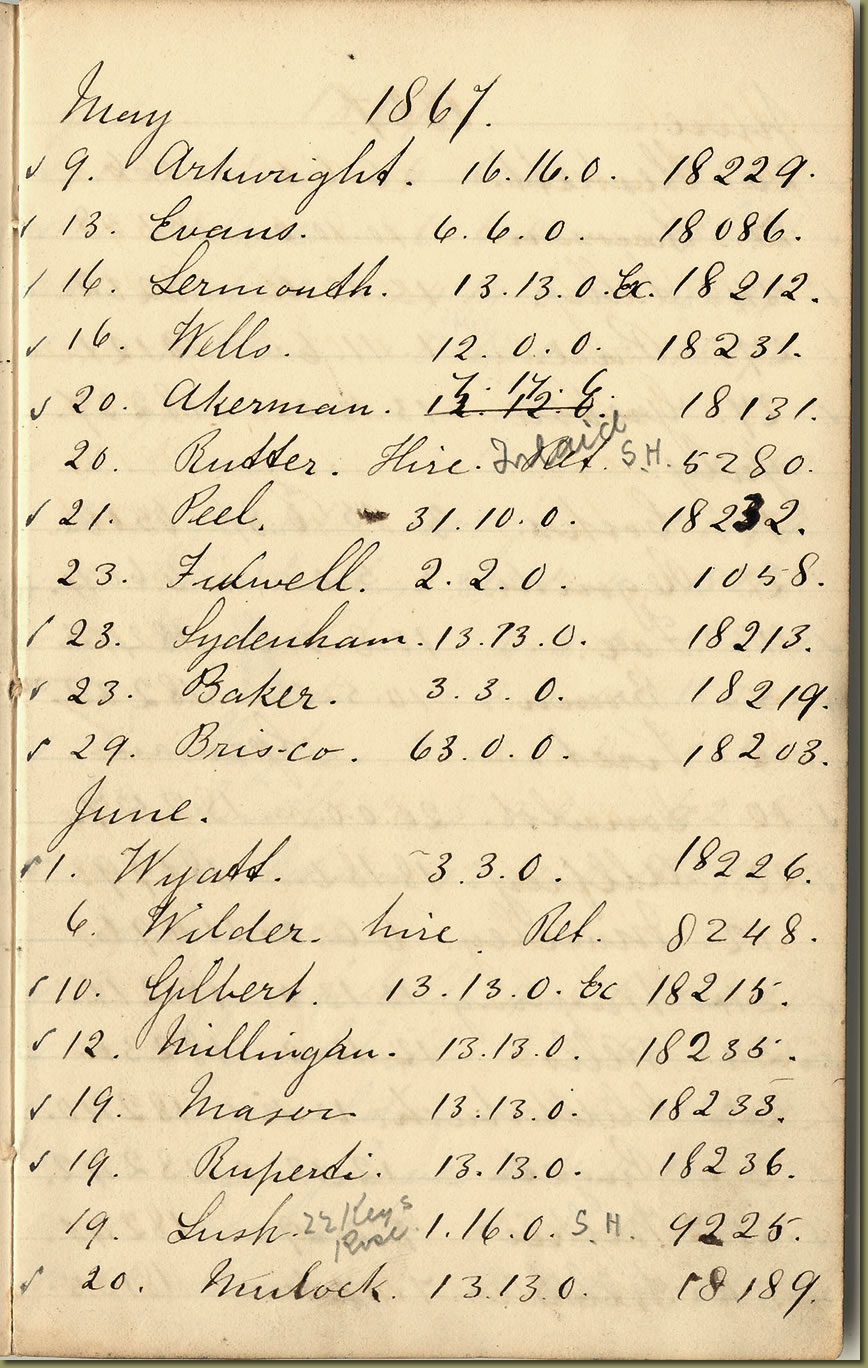 May 1867.
✓ 9. Arkwright. 16.16.0. 18229.
✓ 13. Evans. 6.6.0. 18086.
/ 16. Lermouth. 13.13.0. Ex. 18212.
✓ 16. Wells. 12.0.0. 18231.
7.17.6
✓ 20. Akerman. 12.12.0. 18131.
Inlaid
20. Rutter. Hire. Ret. S.H. 5280.
✓ 21. Peel. 31.10.0. 18232.
23. Fidwell. 2.2.0. 1058.
/ 23. Sydenham. 13.13.0. 18213.
✓ 23. Baker. 3.3.0. 18219.
✓ 29. Brisco. 63.0.0. 18203.
June.
✓ 1. Wyatt. 3.3.0. 18226.
6. Wilder. hire. Ret. 8248.
✓ 10. Gilbert. 13.13.0. Ex 18215.
✓ 12. Millingan. 13.13.0. 18235.
✓ 19. Mason 13.13.0. 18233.
✓ 19. Ruperti. 13.13.0. 18236.
19. Lush. 22 Keys Rose. 1.16.0. S.H. 9225.
✓ 20. Mulock. 13.13.0. 18189.